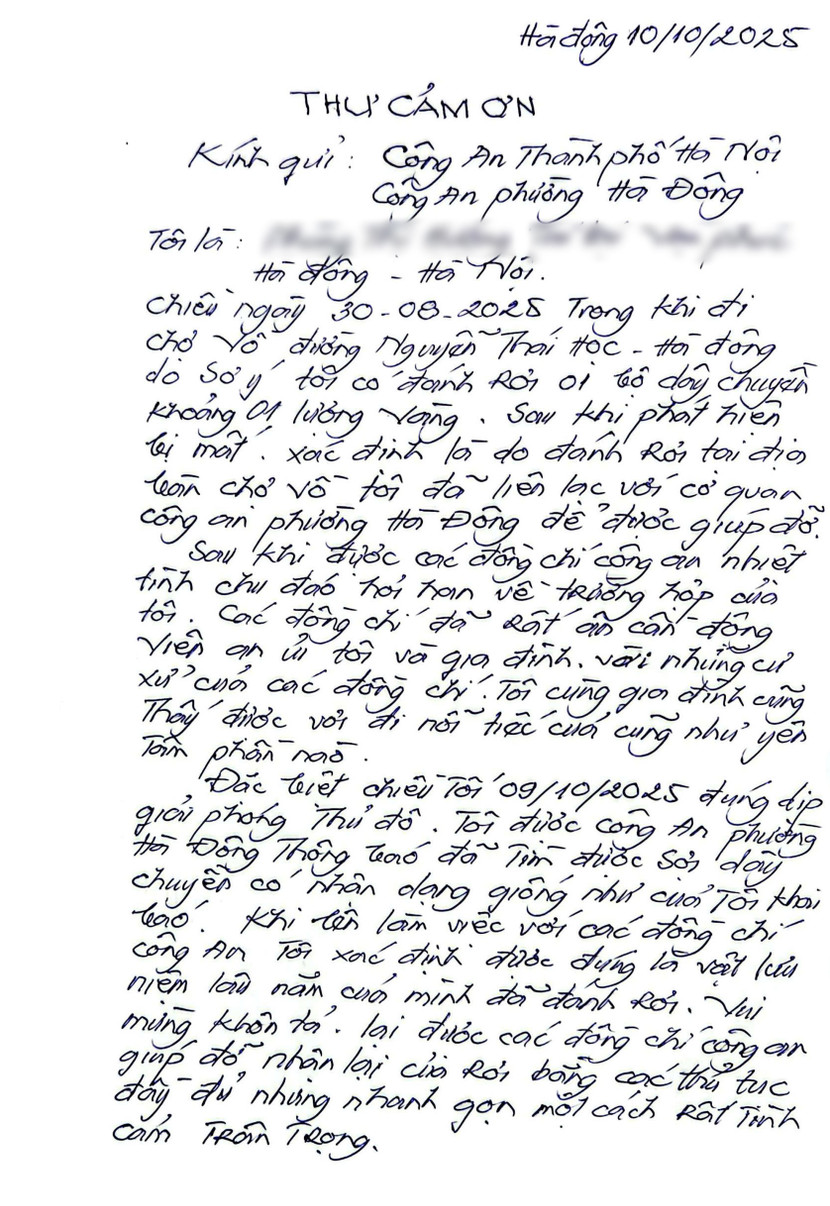 Hà đông 10/10/2025
THƯ CẢM ƠN
Kính gửi: Công An Thành phố Hà Nội
Công An phường Hà Đông
Tôi là:
Hà đông - Hà Nội.
Chiều ngày 30-08-2025 Trong khi đi
chợ Vồ đường Nguyễn Thái Học - Hà đông
do Sơ ý tôi có đánh Rơi 01 bộ dây chuyền
khoảng 01 lượng vàng. Sau khi phát hiện
bị mất. xác định là do đánh Rơi tại địa
bàn chợ Vồ tôi đã liên lạc với cơ quan
công an phường Hà Đông để được giúp đỡ.
Sau khi được các đồng chí công an nhiệt
tình chu đáo hỏi han về trường hợp của
tôi. Các đồng chí đã Rất ân cần động
viên an ủi tôi và gia đình. với những cư
xử của các đồng chí. Tôi cùng gia đình cũng
Thấy được vơi đi nỗi tiếc của cũng như yên
Tâm phần nào.
Đặc biệt chiều Tối 09/10/2025 đúng dịp
giải phóng Thủ đô. Tôi được công An phường
Hà Đông Thông báo đã Tìm được Sợi dây
chuyền có nhân dạng giống như của Tôi khai
báo. Khi lên làm việc với các đồng chí
công An Tôi xác định được đúng là vật lưu
niệm lâu năm của mình đã đánh Rơi. Vui
mừng khôn tả. lại được các đồng chí công an
giúp đỡ nhận lại của Rơi bằng các thủ tục
đầy đủ nhưng nhanh gọn một cách Rất Tình
cảm Trân Trọng.